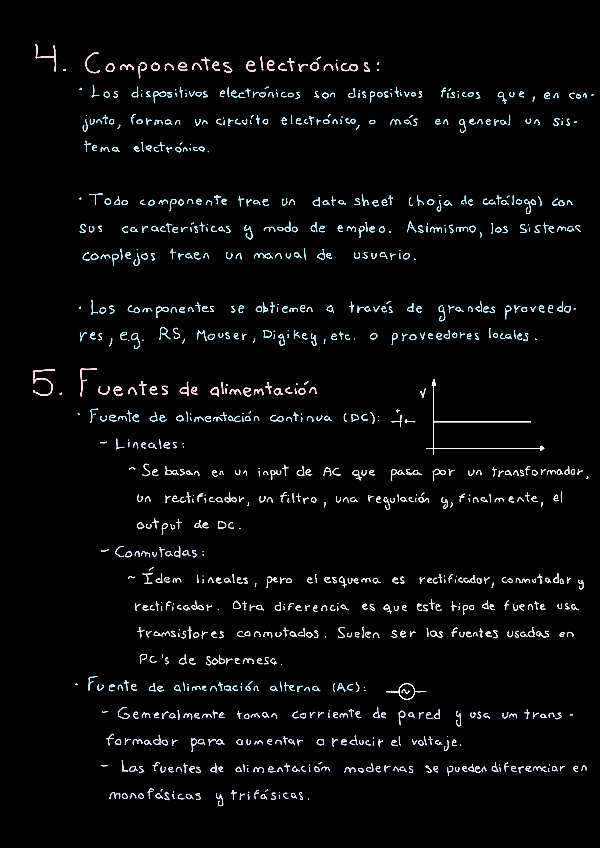 4. Componentes electrónicos:
· Los dispositivos electrónicos son dispositivos físicos que, en con-
junto, forman un circuíto electrónico, o más en general un sis-
tema electrónico.
· Todo componente trae un data sheet (hoja de catálogo) con
sus características y modo de empleo. Asimismo, los sistemas
complejos traen un manual de usuario.
· Los componentes se obtienen a través de grandes proveedo-
res, e.g. RS, Mouser, Digikey, etc. o proveedores locales.
5. Fuentes de alimentación
· Fuente de alimentación continua (DC):
V
- Lineales:
~ Se basan en un input de AC que pasa por un transformador,
un rectificador, un filtro, una regulación y, finalmente, el
output de DC.
- Conmutadas:
~ Ídem lineales, pero el esquema es rectificador, conmutador y
rectificador. Otra diferencia es que este tipo de fuente usa
transistores conmutados. Suelen ser las fuentes usadas en
PC's de sobremesa.
· Fuente de alimentación alterna (AC):
- Generalmente toman corriente de pared y usa un trans-
formador para aumentar o reducir el voltaje.
- Las fuentes de alimentación modernas se pueden diferenciar en
monofásicas y trifásicas.